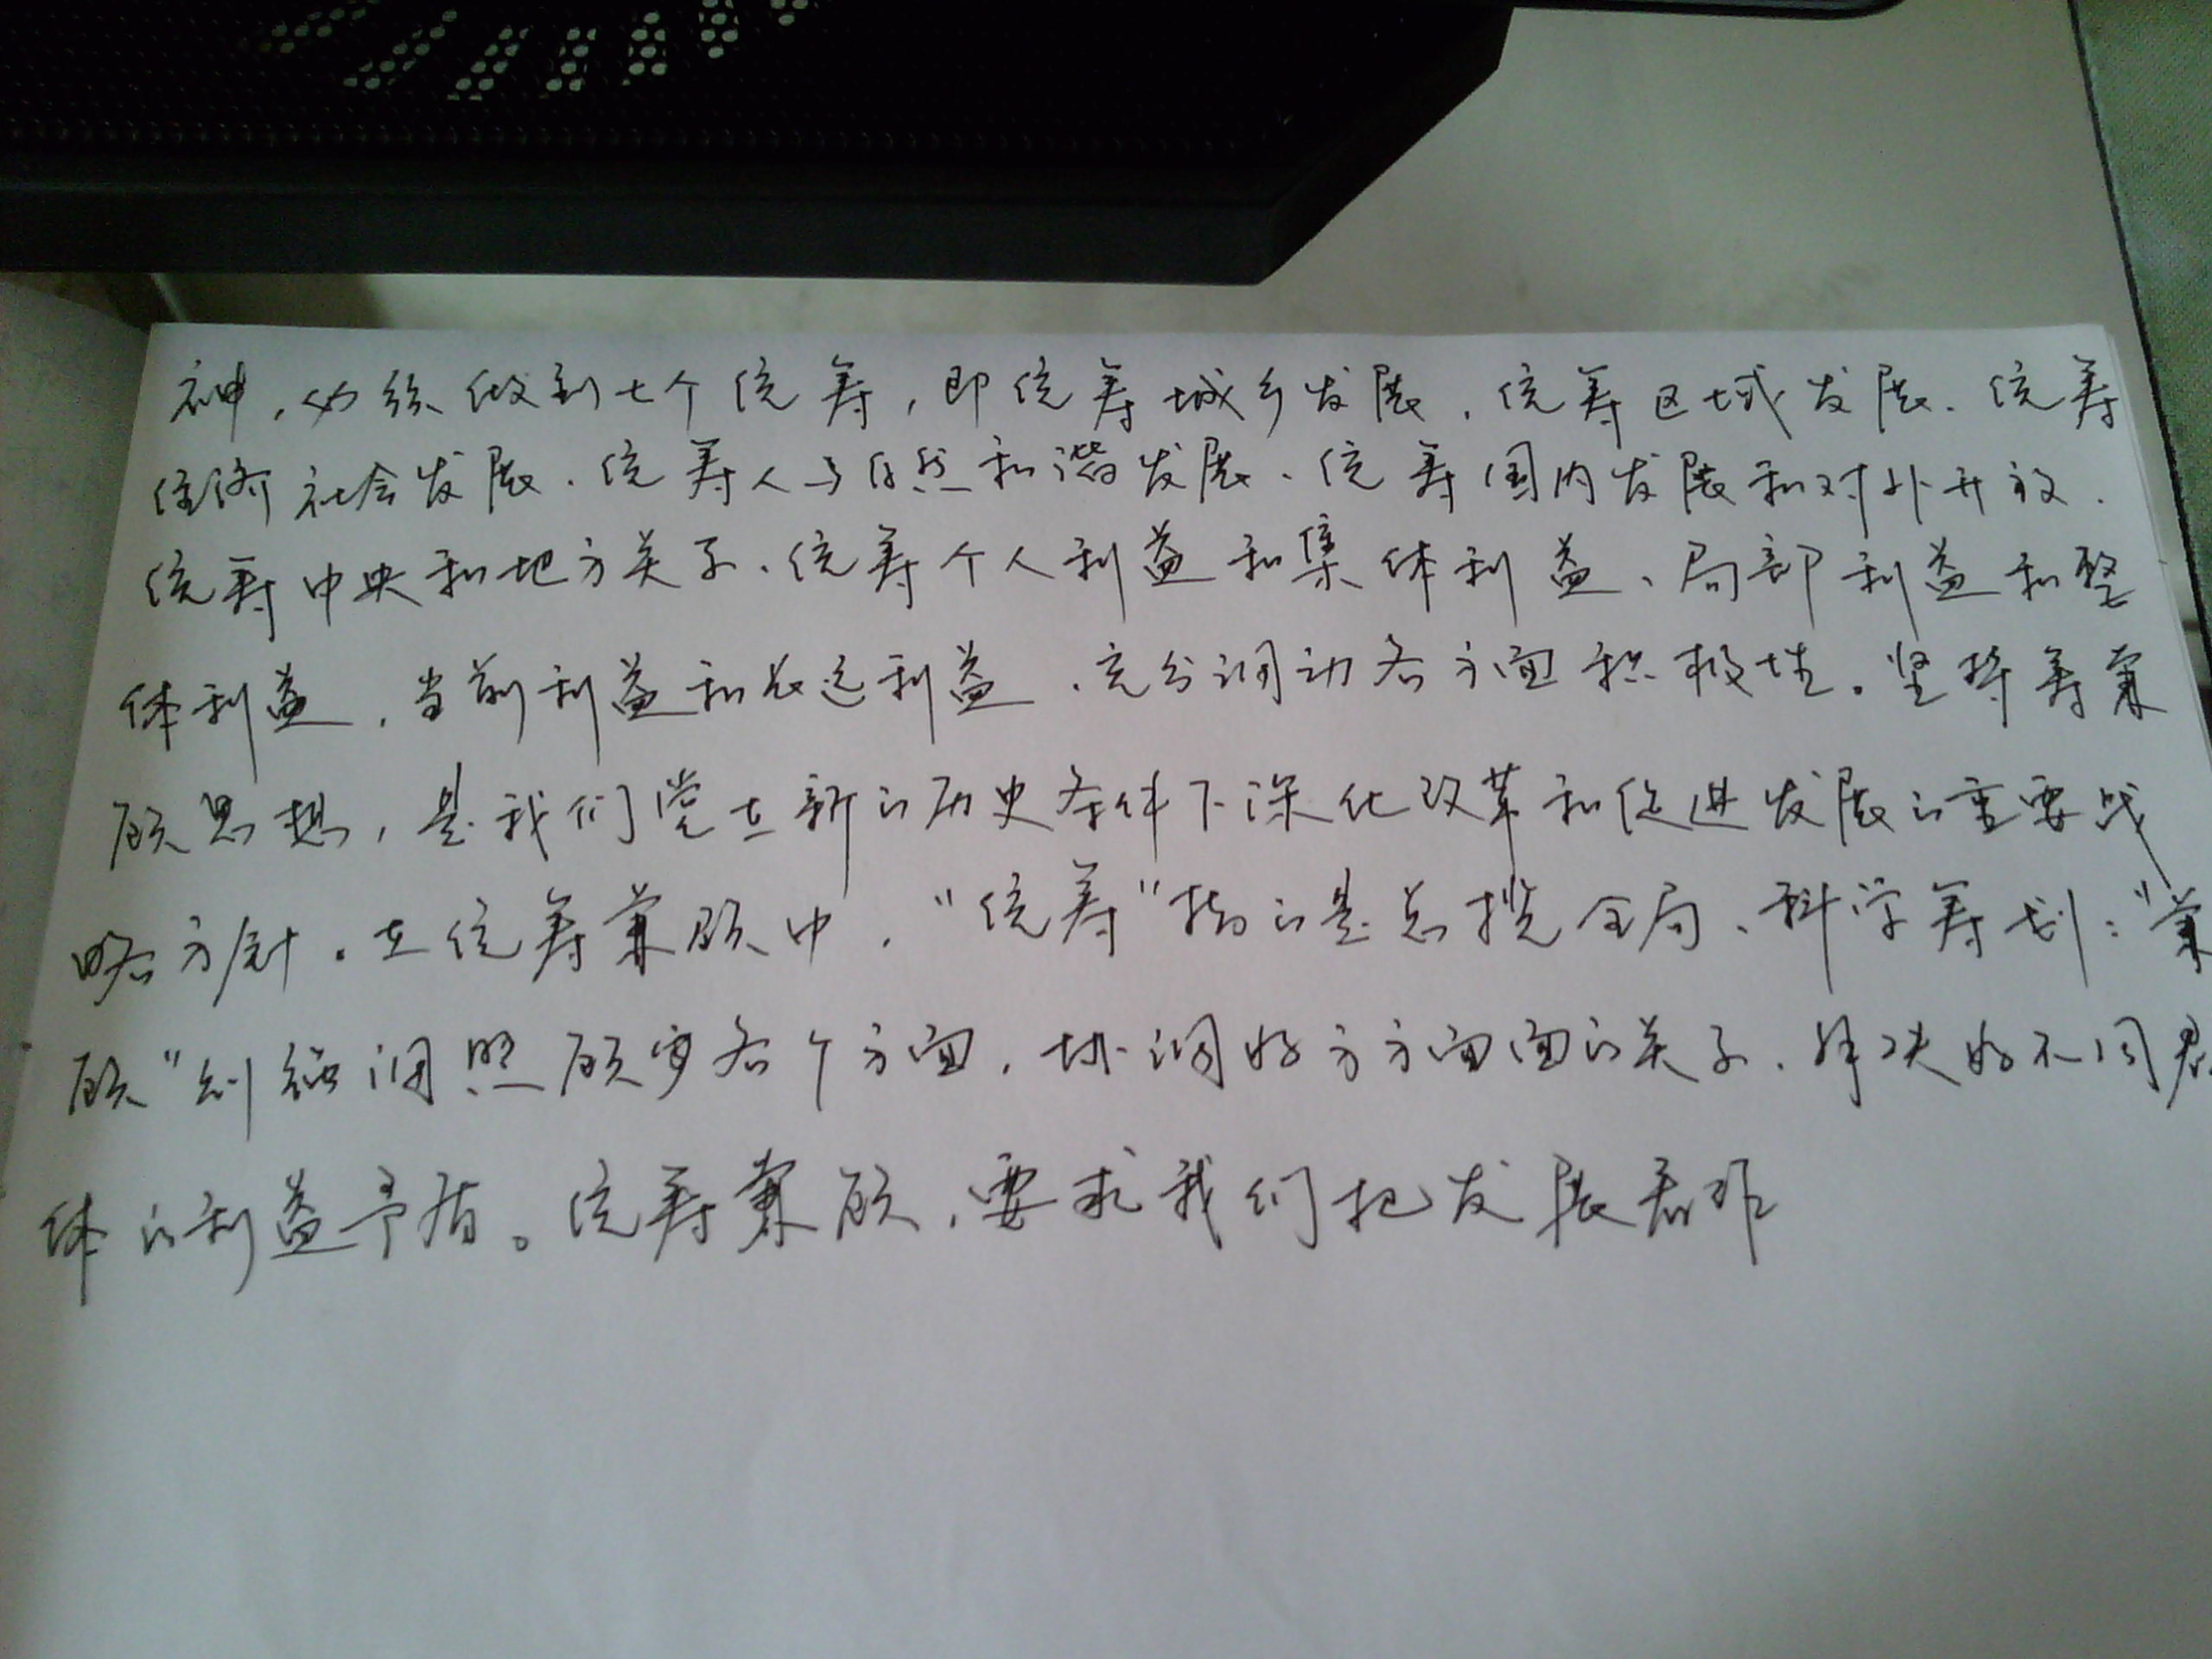 神，必须做到七个统筹，即统筹城乡发展、统筹区域发展、统筹
经济社会发展、统筹人与自然和谐发展、统筹国内发展和对外开放、
统筹中央和地方关系、统筹个人利益和集体利益、局部利益和整
体利益、当前利益和长远利益，充分调动各方面积极性。坚持筹兼
顾思想，是我们党在新的历史条件下深化改革和促进发展的重要战
略方针。在统筹兼顾中，“统筹”指的是总揽全局、科学筹划；“兼
顾”则强调照顾密各个方面，协调好方方面面的关系，解决好不同群
体的利益矛盾。统筹兼顾，要求我们把发展看作